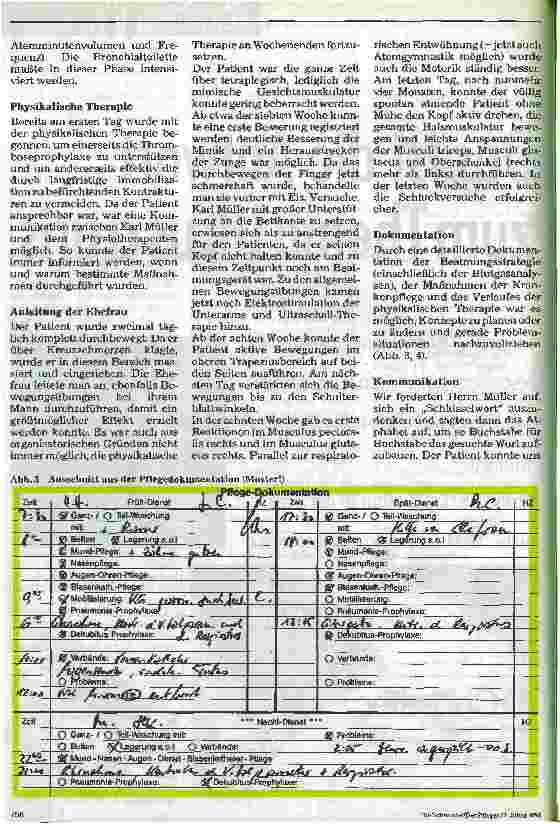 Atemminutenvolumen und Fre-
quenz). Die Bronchialtoilette
mußte in dieser Phase intensi-
viert werden.
Physikalische Therapie
Bereits am ersten Tag wurde mit
der physikalischen Therapie be-
gonnen, um einerseits die Throm-
boseprophylaxe zu unterstützen
und um andererseits effektiv die
durch langfristige Immobilisa-
tion zu befürchtenden Kontraktu-
ren zu vermeiden. Da der Patient
ansprechbar war, war eine Kom-
munikation zwischen Karl Müller
und dem Physiotherapeuten
möglich. So konnte der Patient
immer informiert werden, wann
und warum bestimmte Maßnah-
men durchgeführt wurden.
Anleitung der Ehefrau
Der Patient wurde zweimal täg-
lich komplett durchbewegt. Da er
über Kreuzschmerzen klagte,
wurde er in diesem Bereich mas-
siert und eingerieben. Die Ehe-
frau leitete man an, ebenfalls Be-
wegungsübungen bei ihrem
Mann durchzuführen, damit ein
größtmöglicher Effekt erzielt
werden konnte. Es war auch aus
organisatorischen Gründen nicht
immer möglich, die physikalische
Therapie an Wochenenden fortzu-
setzen.
Der Patient war die ganze Zeit
über tetraplegisch, lediglich die
mimische Gesichtsmuskulatur
konnte gering beherrscht werden.
Ab etwa der siebten Woche konn-
te eine erste Bewegung registriert
werden: deutliche Besserung der
Mimik und ein Herausstrecken
der Zunge war möglich. Da das
Durchbewegen der Finger jetzt
schmerzhaft wurde, behandelte
man sie vorher mit Eis. Versuche,
Karl Müller mit großer Unterstüt-
zung an die Bettkante zu setzen,
erwiesen sich als zu anstrengend
für den Patienten, da er seinen
Kopf nicht halten konnte und zu
diesem Zeitpunkt noch am Beat-
mungsgerät war. Zu den allgemei-
nen Bewegungsübungen kamen
jetzt noch Elektrostimulation der
Unterarme und Ultraschall-The-
rapie hinzu.
Ab der achten Woche konnte der
Patient aktive Bewegungen im
oberen Trapeziusbereich auf bei-
den Seiten ausführen. Am näch-
sten Tag verstärkten sich die Be-
wegungen bis zu den Schulter-
blattwinkeln.
In der zehnten Woche gab es erste
Reaktionen im Musculus pectora-
lis rechts und im Musculus glutä-
eus rechts. Parallel zur respirato-
rischen Entwöhnung (= jetzt auch
Atemgymnastik möglich) wurde
auch die Motorik ständig besser.
Am letzten Tag, nach nunmehr
vier Monaten, konnte der völlig
spontan atmende Patient ohne
Mühe den Kopf aktiv drehen, die
gesamte Halsmuskulatur bewe-
gen und leichte Anspannungen
der Musculi triceps, Musculi glu-
taeus und Oberschenkel (rechts
mehr als links) durchführen. In
der letzten Woche wurden auch
die Schluckversuche erfolgrei-
cher.
Dokumentation
Durch eine detaillierte Dokumen-
tation der Beatmungsstrategie
(einschließlich der Blutgasanaly-
sen), der Maßnahmen der Kran-
kenpflege und des Verlaufes der
physikalischen Therapie war es
möglich, Konzepte zu planen oder
zu ändern und gerade Problem-
situationen nachzuvollziehen
(Abb. 3, 4).
Kommunikation
Wir forderten Herrn Müller auf,
sich ein „Schlüsselwort" auszu-
denken und sagten dann das Al-
phabet auf, um so Buchstabe für
Buchstabe das gesuchte Wort auf-
zubauen. Der Patient konnte uns
Abb. 3 Ausschnitt aus der Pflegedokumentation (Muster!)
Pflege-Dokumentation
Zeit Früh-Dienst HZ Zeit Spät-Dienst HZ
Ganz- / Teil-Waschung Ganz- / Teil-Waschung
mit mit
Betten Lagerung s.o.! Betten Lagerung s.o.!
Mund-Pflege: Mund-Pflege:
Nasenpflege: Nasenpflege:
Augen-Ohren-Pflege: Augen-Ohren-Pflege:
Blasenkath.-Pflege: Blasenkath.-Pflege:
Mobilisierung: Mobilisierung:
Pneumonie-Prophylaxe: Pneumonie-Prophylaxe:
Dekubitus Prophylaxe: Dekubitus-Prophylaxe:
Verbände: Verbände:
Probleme: Probleme:
Zeit *** Nacht-Dienst *** HZ
Ganz- / Teil-Waschung mit: Probleme:
Betten Lagerung s.o.! Verbände:
Mund-Nasen-Augen-Dienst-Blasenkatheter-Pflege
Pneumonie-Prophylaxe: Dekubitus-Prophylaxe: